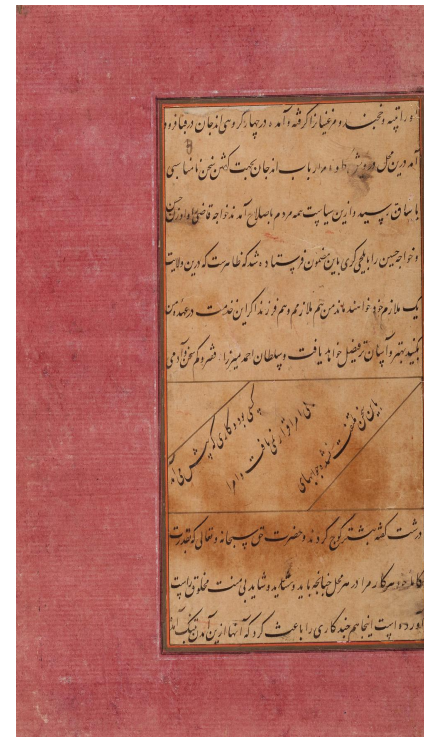 و راتپه و خجند و مرغینان را گرفته و آمده در چهار کروهی اندجان در قبا فرود
آمد درین محل درویش ارباب اندجان بجهت گفتن سخن نامناسبی
یا ساق رسید و ازین سیاست همه مردم باصلاح آمدند خواجه قاضی و اوزن حسن
و خواجه حسین را بایلچی گری باین مضمون فرستاده شد که ظاهرست که درین ولایت
یک ملازم خود خواهند ماند من هم ملازمم و هم فرزند اگر این خدمت در عهده من
کنید بهتر و آسان تر فیصل خواهد یافت و سلطان احمد میرزا فقیر و کم سخن و آدمی
کسی بود و کاری که پیش می آمد
بی امرا قرار نمی یافت و امرا
باین سخن ملتفت نشده جوابهای
درشت گفته پیشتر کوچ کردند و حضرت حق سبحانه و تعالی که بقدرت
کامله خود هر کار مرا در هر محل چنانچه باید و شاید بی منت مخلوق راست
آورده است اینجا هم چند کاری را باعث کرد که آنها ازین آمدن بتنگ